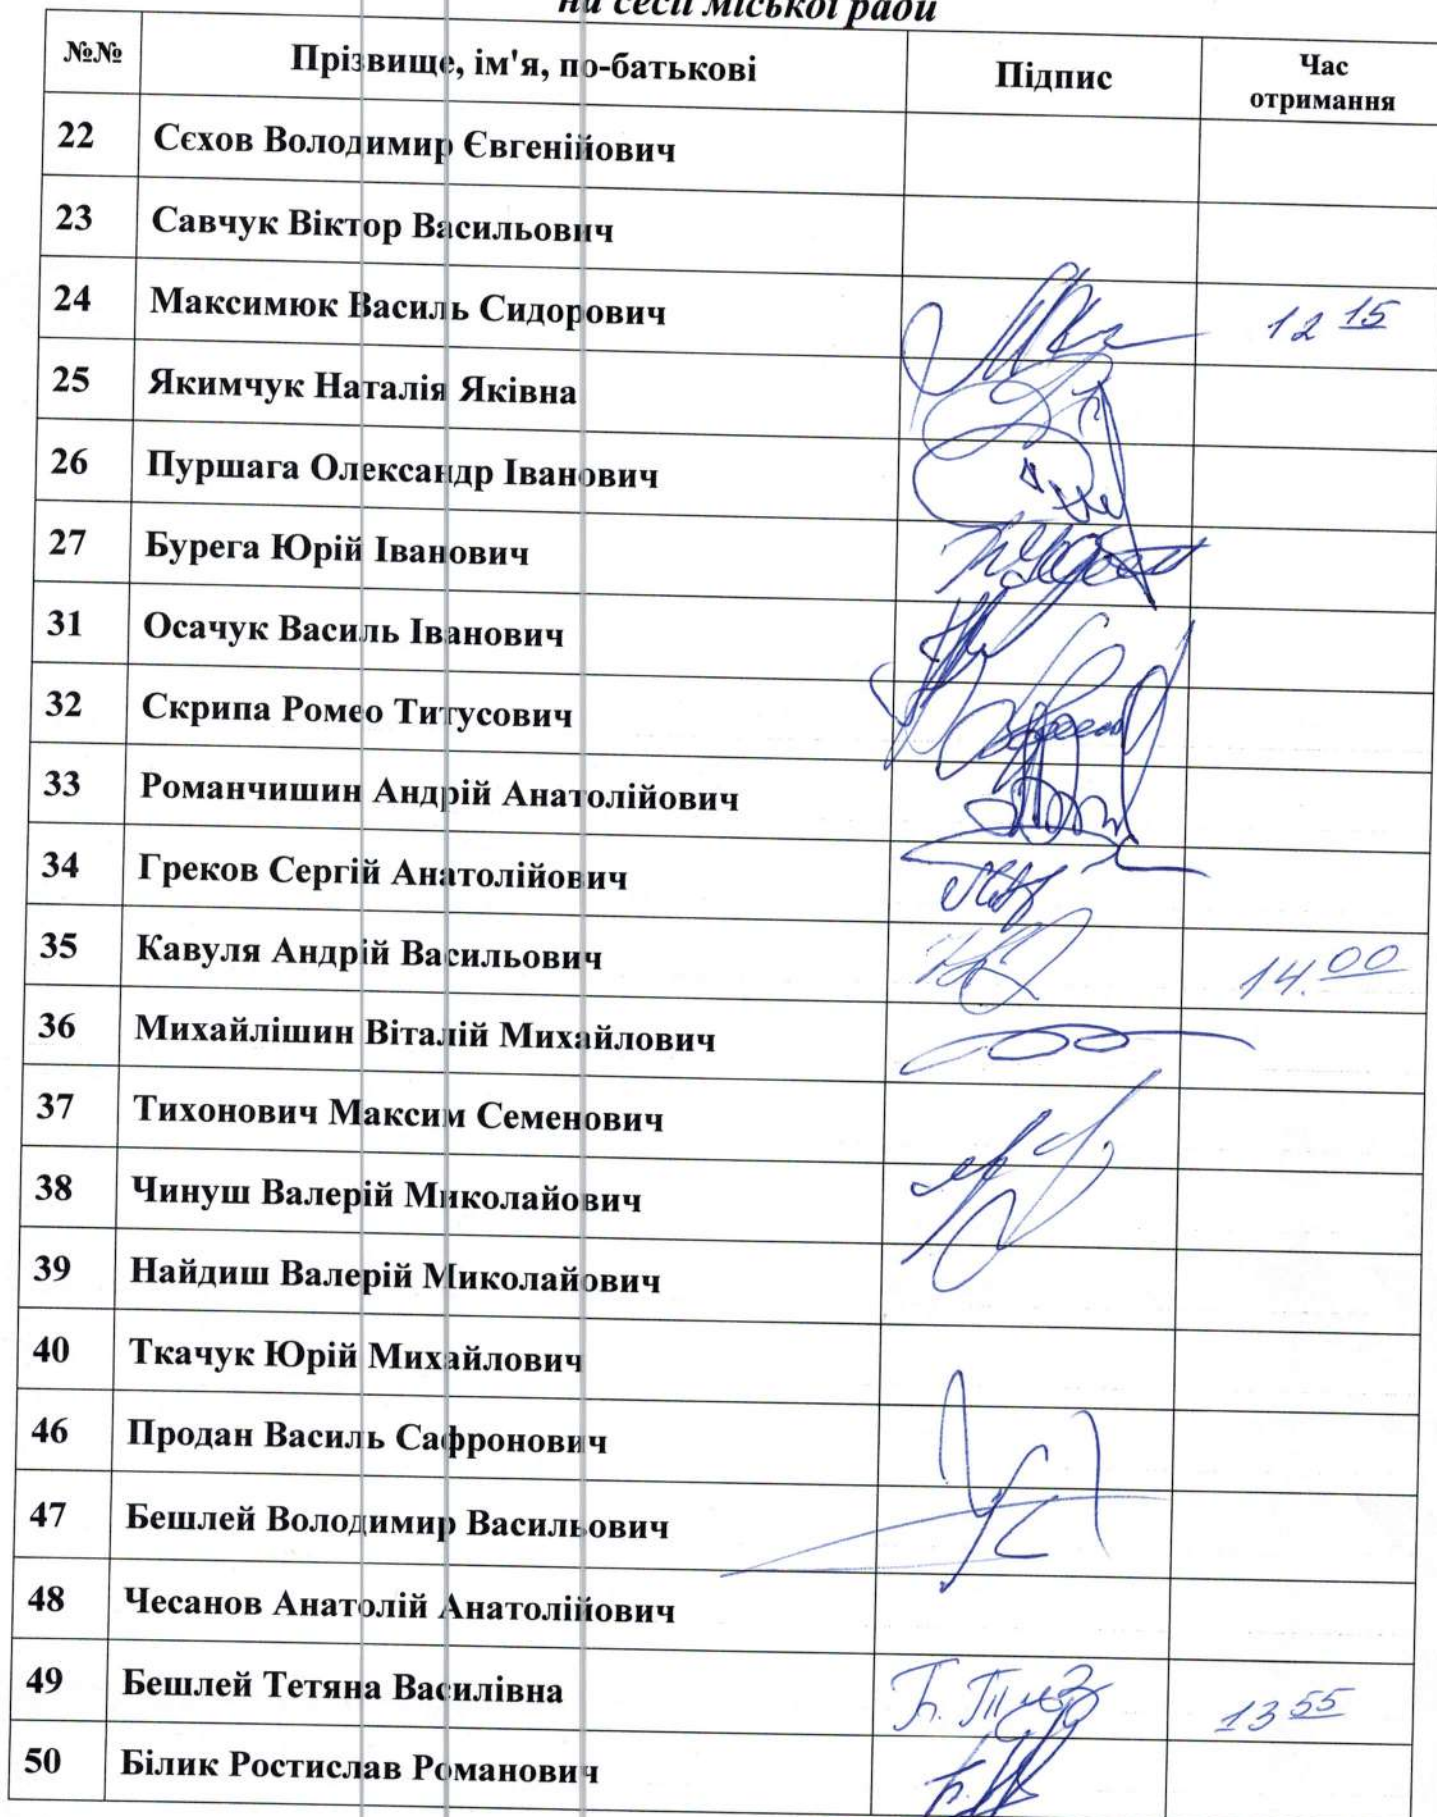 на сесії міської ради
№№ Прізвище, ім'я, по-батькові Підпис Час
отримання
22 Сєхов Володимир Євгенійович
23 Савчук Віктор Васильович
24 Максимюк Василь Сидорович 12 15
25 Якимчук Наталія Яківна
26 Пуршага Олександр Іванович
27 Бурега Юрій Іванович
31 Осачук Василь Іванович
32 Скрипа Ромео Титусович
33 Романчишин Андрій Анатолійович
34 Греков Сергій Анатолійович
35 Кавуля Андрій Васильович 14.00
36 Михайлішин Віталій Михайлович
37 Тихонович Максим Семенович
38 Чинуш Валерій Миколайович
39 Найдиш Валерій Миколайович
40 Ткачук Юрій Михайлович
46 Продан Василь Сафронович
47 Бешлей Володимир Васильович
48 Чесанов Анатолій Анатолійович
49 Бешлей Тетяна Василівна 13 55
50 Білик Ростислав Романович